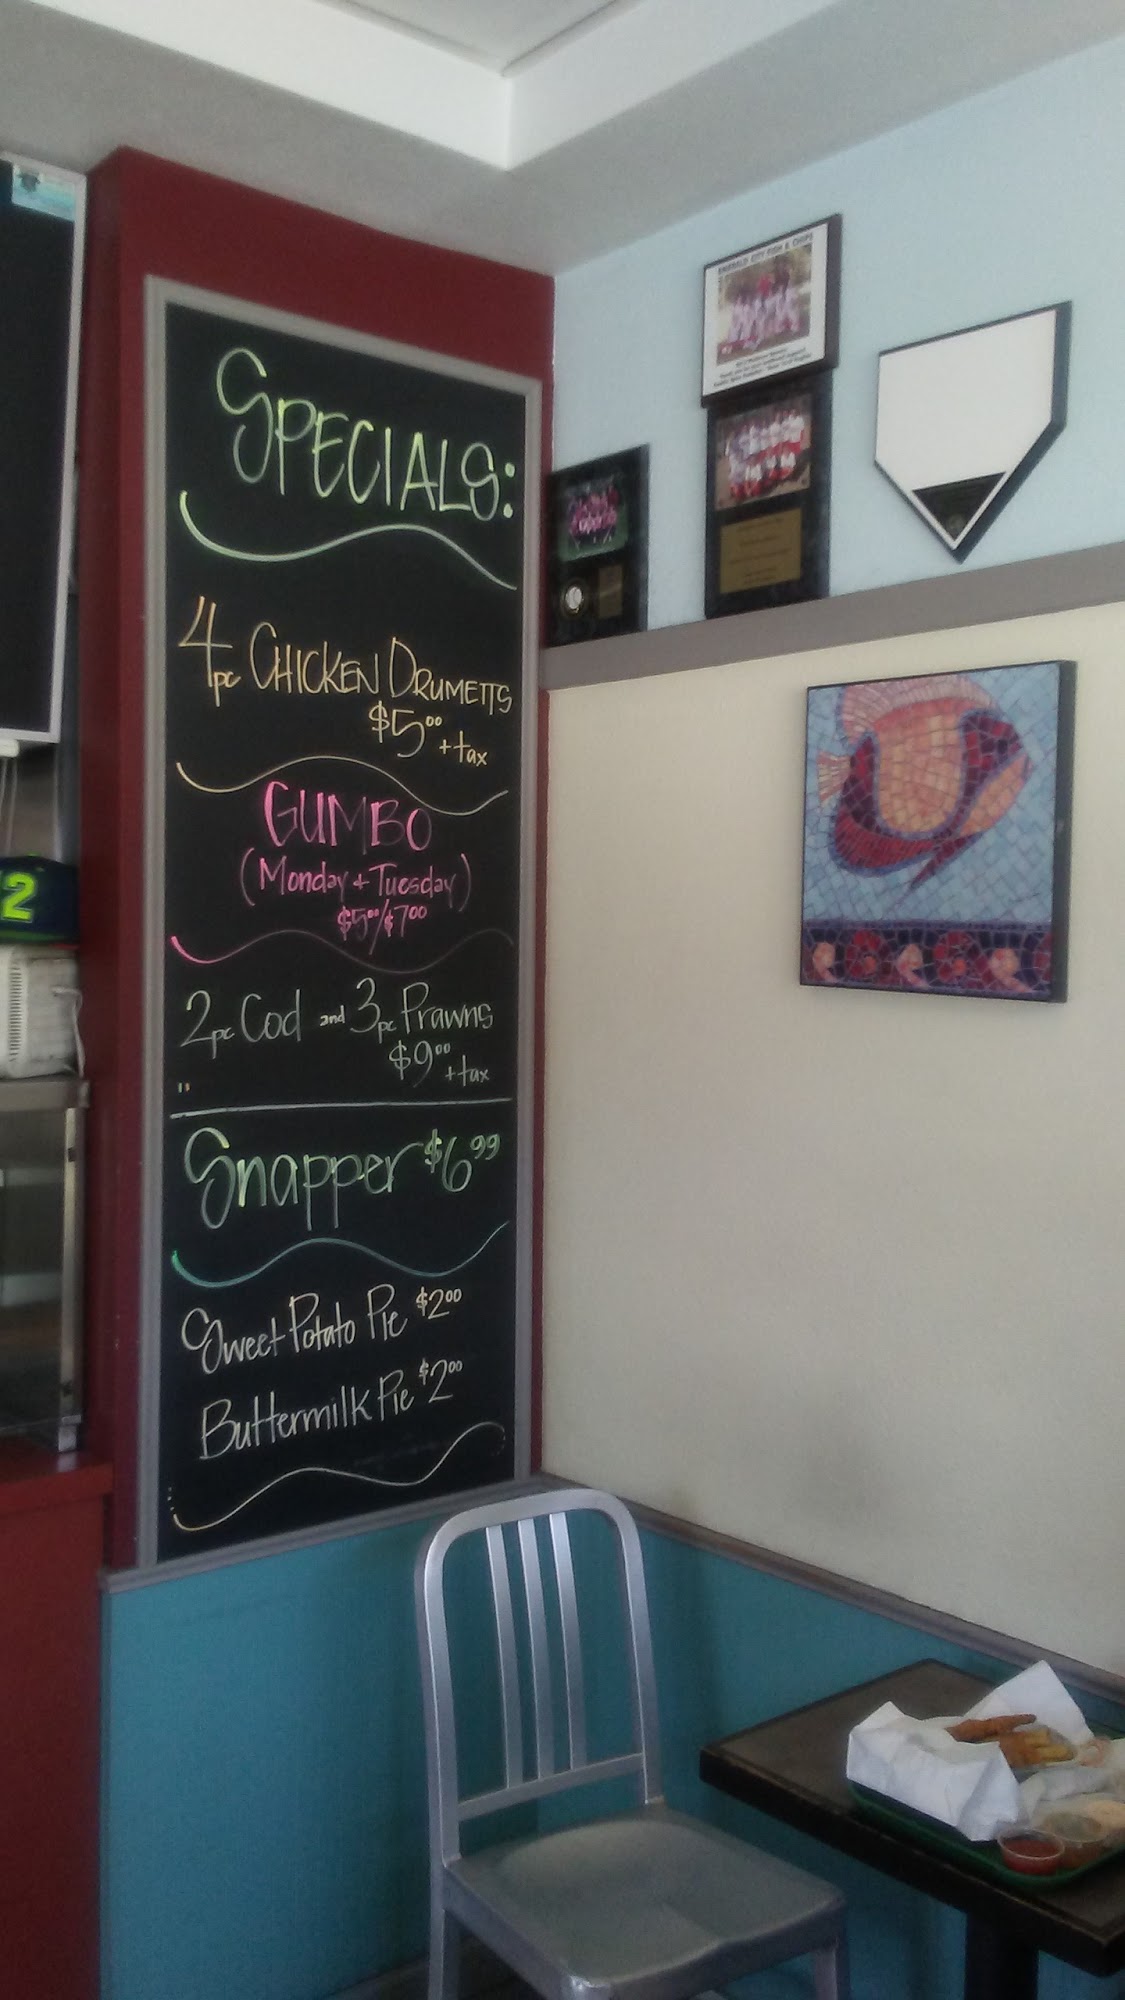 SPECIALS:
4pc CHICKEN DRUMETTS
$5.00
+ tax
GUMBO
(Monday + Tuesday)
$5.00/$7.00
2pc Cod and 3pc Prawns
$9.00
+ tax
Snapper $6.99
Sweet Potato Pie $2.00
Buttermilk Pie $2.00
EMERALD CITY FISH & CHIPS
2